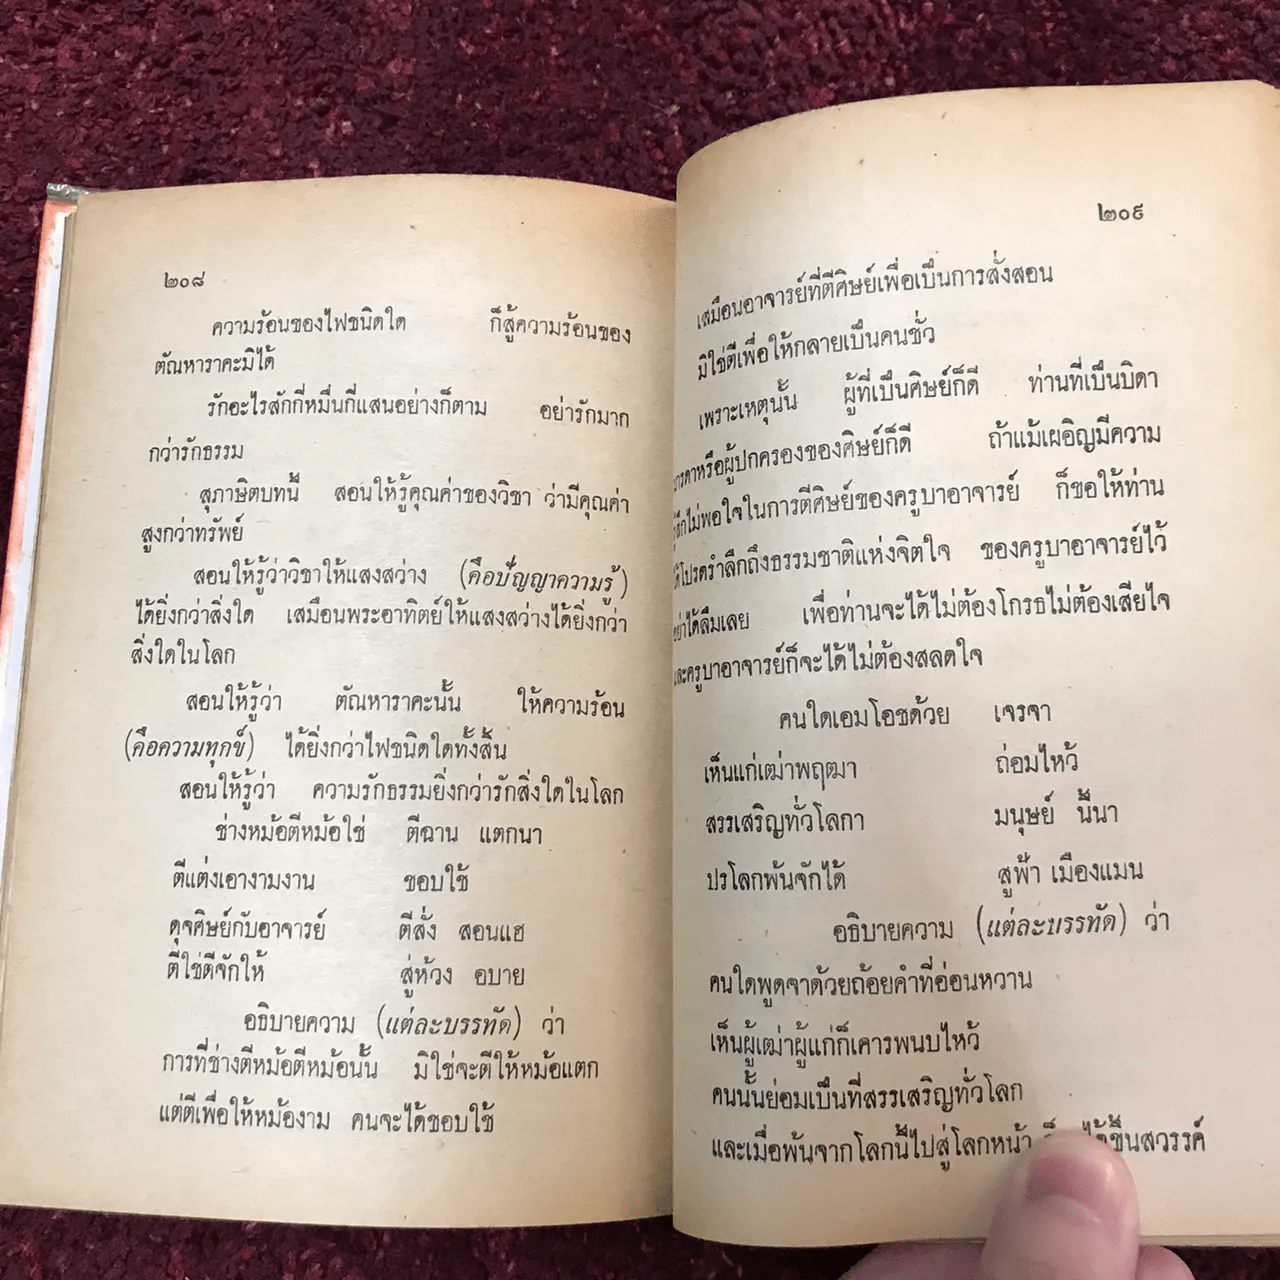 ๒๐๘
ความร้อนของไฟชนิดใด ก็สู้ความร้อนของ
ตัณหาราคะมิได้
รักอะไรสักกี่หมื่นกี่แสนอย่างก็ตาม อย่ารักมาก
กว่ารักธรรม
สุภาษิตบทนี้ สอนให้รู้คุณค่าของวิชา ว่ามีคุณค่า
สูงกว่าทรัพย์
สอนให้รู้ว่าวิชาให้แสงสว่าง (คือปัญญาความรู้)
ได้ยิ่งกว่าสิ่งใด เสมือนพระอาทิตย์ให้แสงสว่างได้ยิ่งกว่า
สิ่งใดในโลก
สอนให้รู้ว่า ตัณหาราคะนั้น ให้ความร้อน
(คือความทุกข์) ได้ยิ่งกว่าไฟชนิดใดทั้งสิ้น
สอนให้รู้ว่า ความรักธรรมยิ่งกว่ารักสิ่งใดในโลก
ช่างหม้อตีหม้อใช่ ตีฉาน แตกนา
ตีแต่งเอางามงาน ชอบใช้
ดุจศิษย์กับอาจารย์ ตีสั่ง สอนแฮ
ตีใช่ตีจักให้ สู่ห้วง อบาย
อธิบายความ (แต่ละบรรทัด) ว่า
การที่ช่างตีหม้อตีหม้อนั้น มิใช่จะตีให้หม้อแตก
แต่ตีเพื่อให้หม้องาม คนจะได้ชอบใช้
๒๐๙
เสมือนอาจารย์ที่ตีศิษย์เพื่อเป็นการสั่งสอน
มิใช่ตีเพื่อให้กลายเป็นคนชั่ว
เพราะเหตุนั้น ผู้ที่เป็นศิษย์ก็ดี ท่านที่เป็นบิดา
มารดาหรือผู้ปกครองของศิษย์ก็ดี ถ้าแม้เผอิญมีความ
รู้สึกไม่พอใจในการตีศิษย์ของครูบาอาจารย์ ก็ขอให้ท่าน
ได้โปรดรำลึกถึงธรรมชาติแห่งจิตใจ ของครูบาอาจารย์ไว้
อย่าได้ลืมเลย เพื่อท่านจะได้ไม่ต้องโกรธไม่ต้องเสียใจ
และครูบาอาจารย์ก็จะได้ไม่ต้องสลดใจ
คนใดเอมโอชด้วย เจรจา
เห็นแก่เฒ่าพฤฒา ถ่อมไหว้
สรรเสริญทั่วโลกา มนุษย์ นี้นา
ปรโลกพ้นจักได้ สู่ฟ้า เมืองแมน
อธิบายความ (แต่ละบรรทัด) ว่า
คนใดพูดจาด้วยถ้อยคำที่อ่อนหวาน
เห็นผู้เฒ่าผู้แก่ก็เคารพนบไหว้
คนนั้นย่อมเป็นที่สรรเสริญทั่วโลก
และเมื่อพ้นจากโลกนี้ไปสู่โลกหน้า ได้ขึ้นสวรรค์